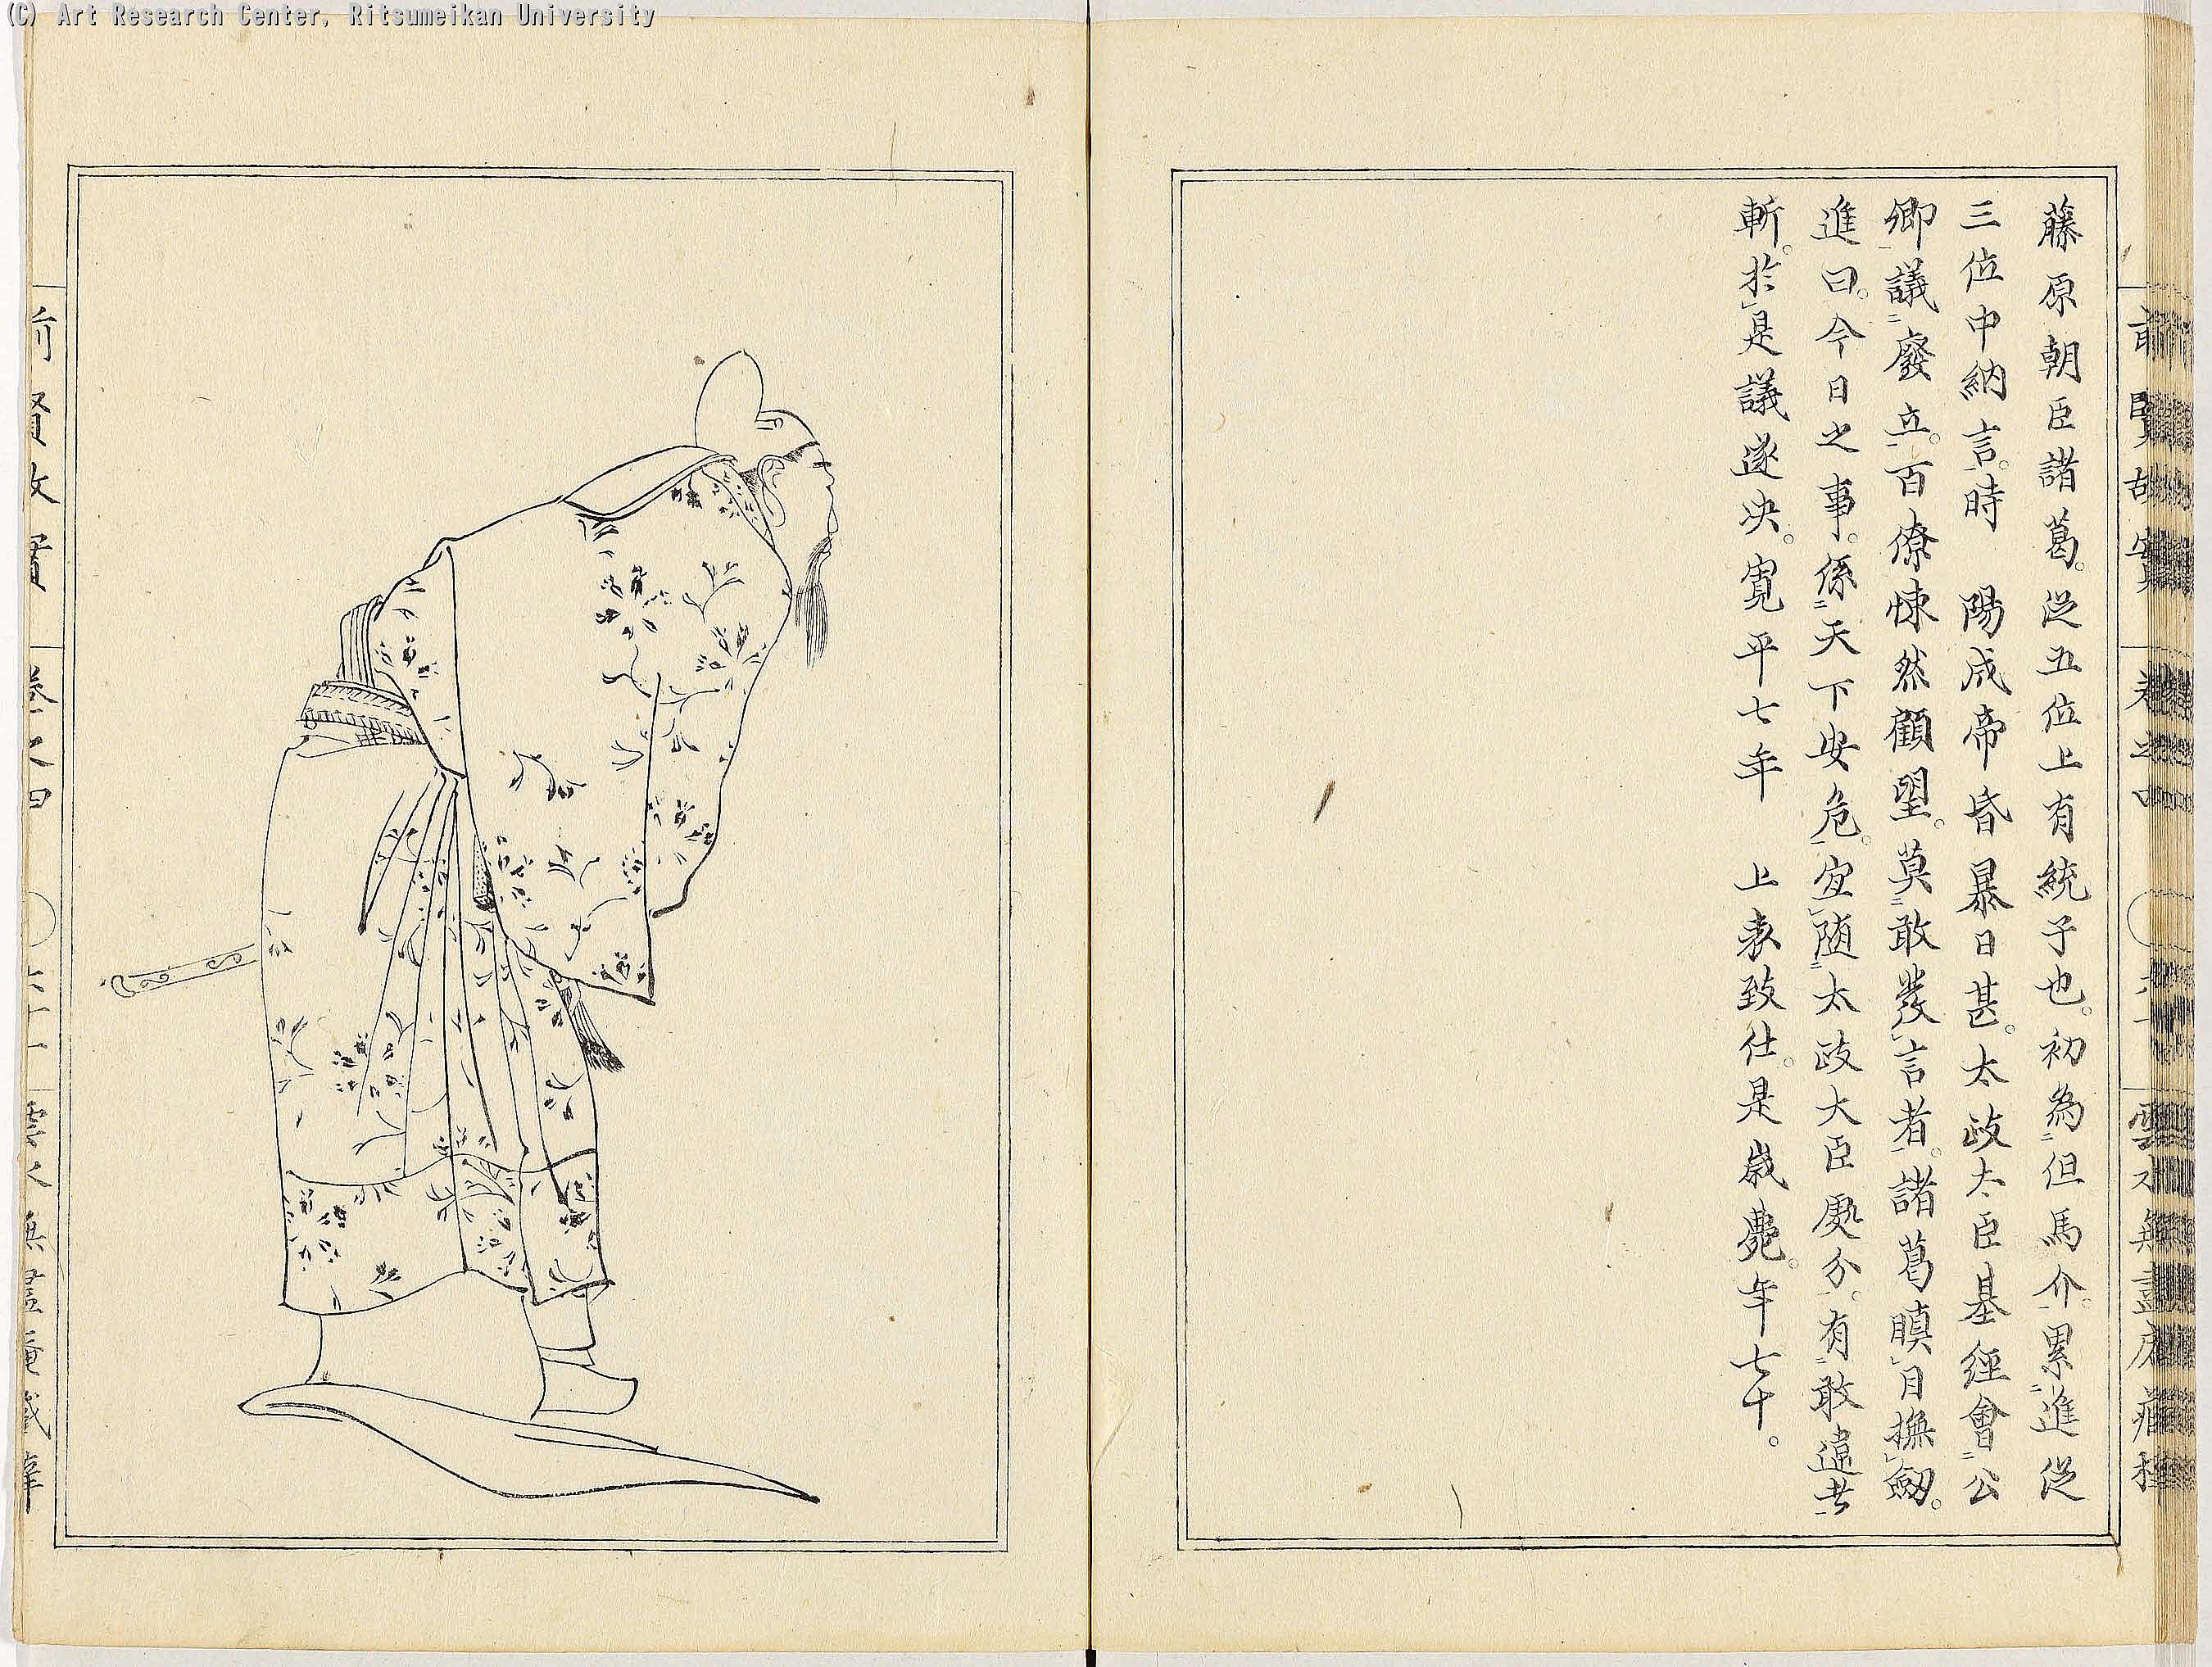 (C) Art Research Center, Ritsumeikan University
藤原朝臣諸葛。従五位上有統子也。初為但馬介。累進従
三位中納言。時　陽成帝昏暴日甚。太政大臣基經會公
卿議廢立。百僚悚然顧望。莫敢發言者。諸葛瞋目撫劔。
進曰。今日之事。係天下安危。宜随太政大臣處分。有敢違者
斬。於是議遂决。寛平七年　上表致仕。是歳薨。年七十。
前賢故實
卷之四